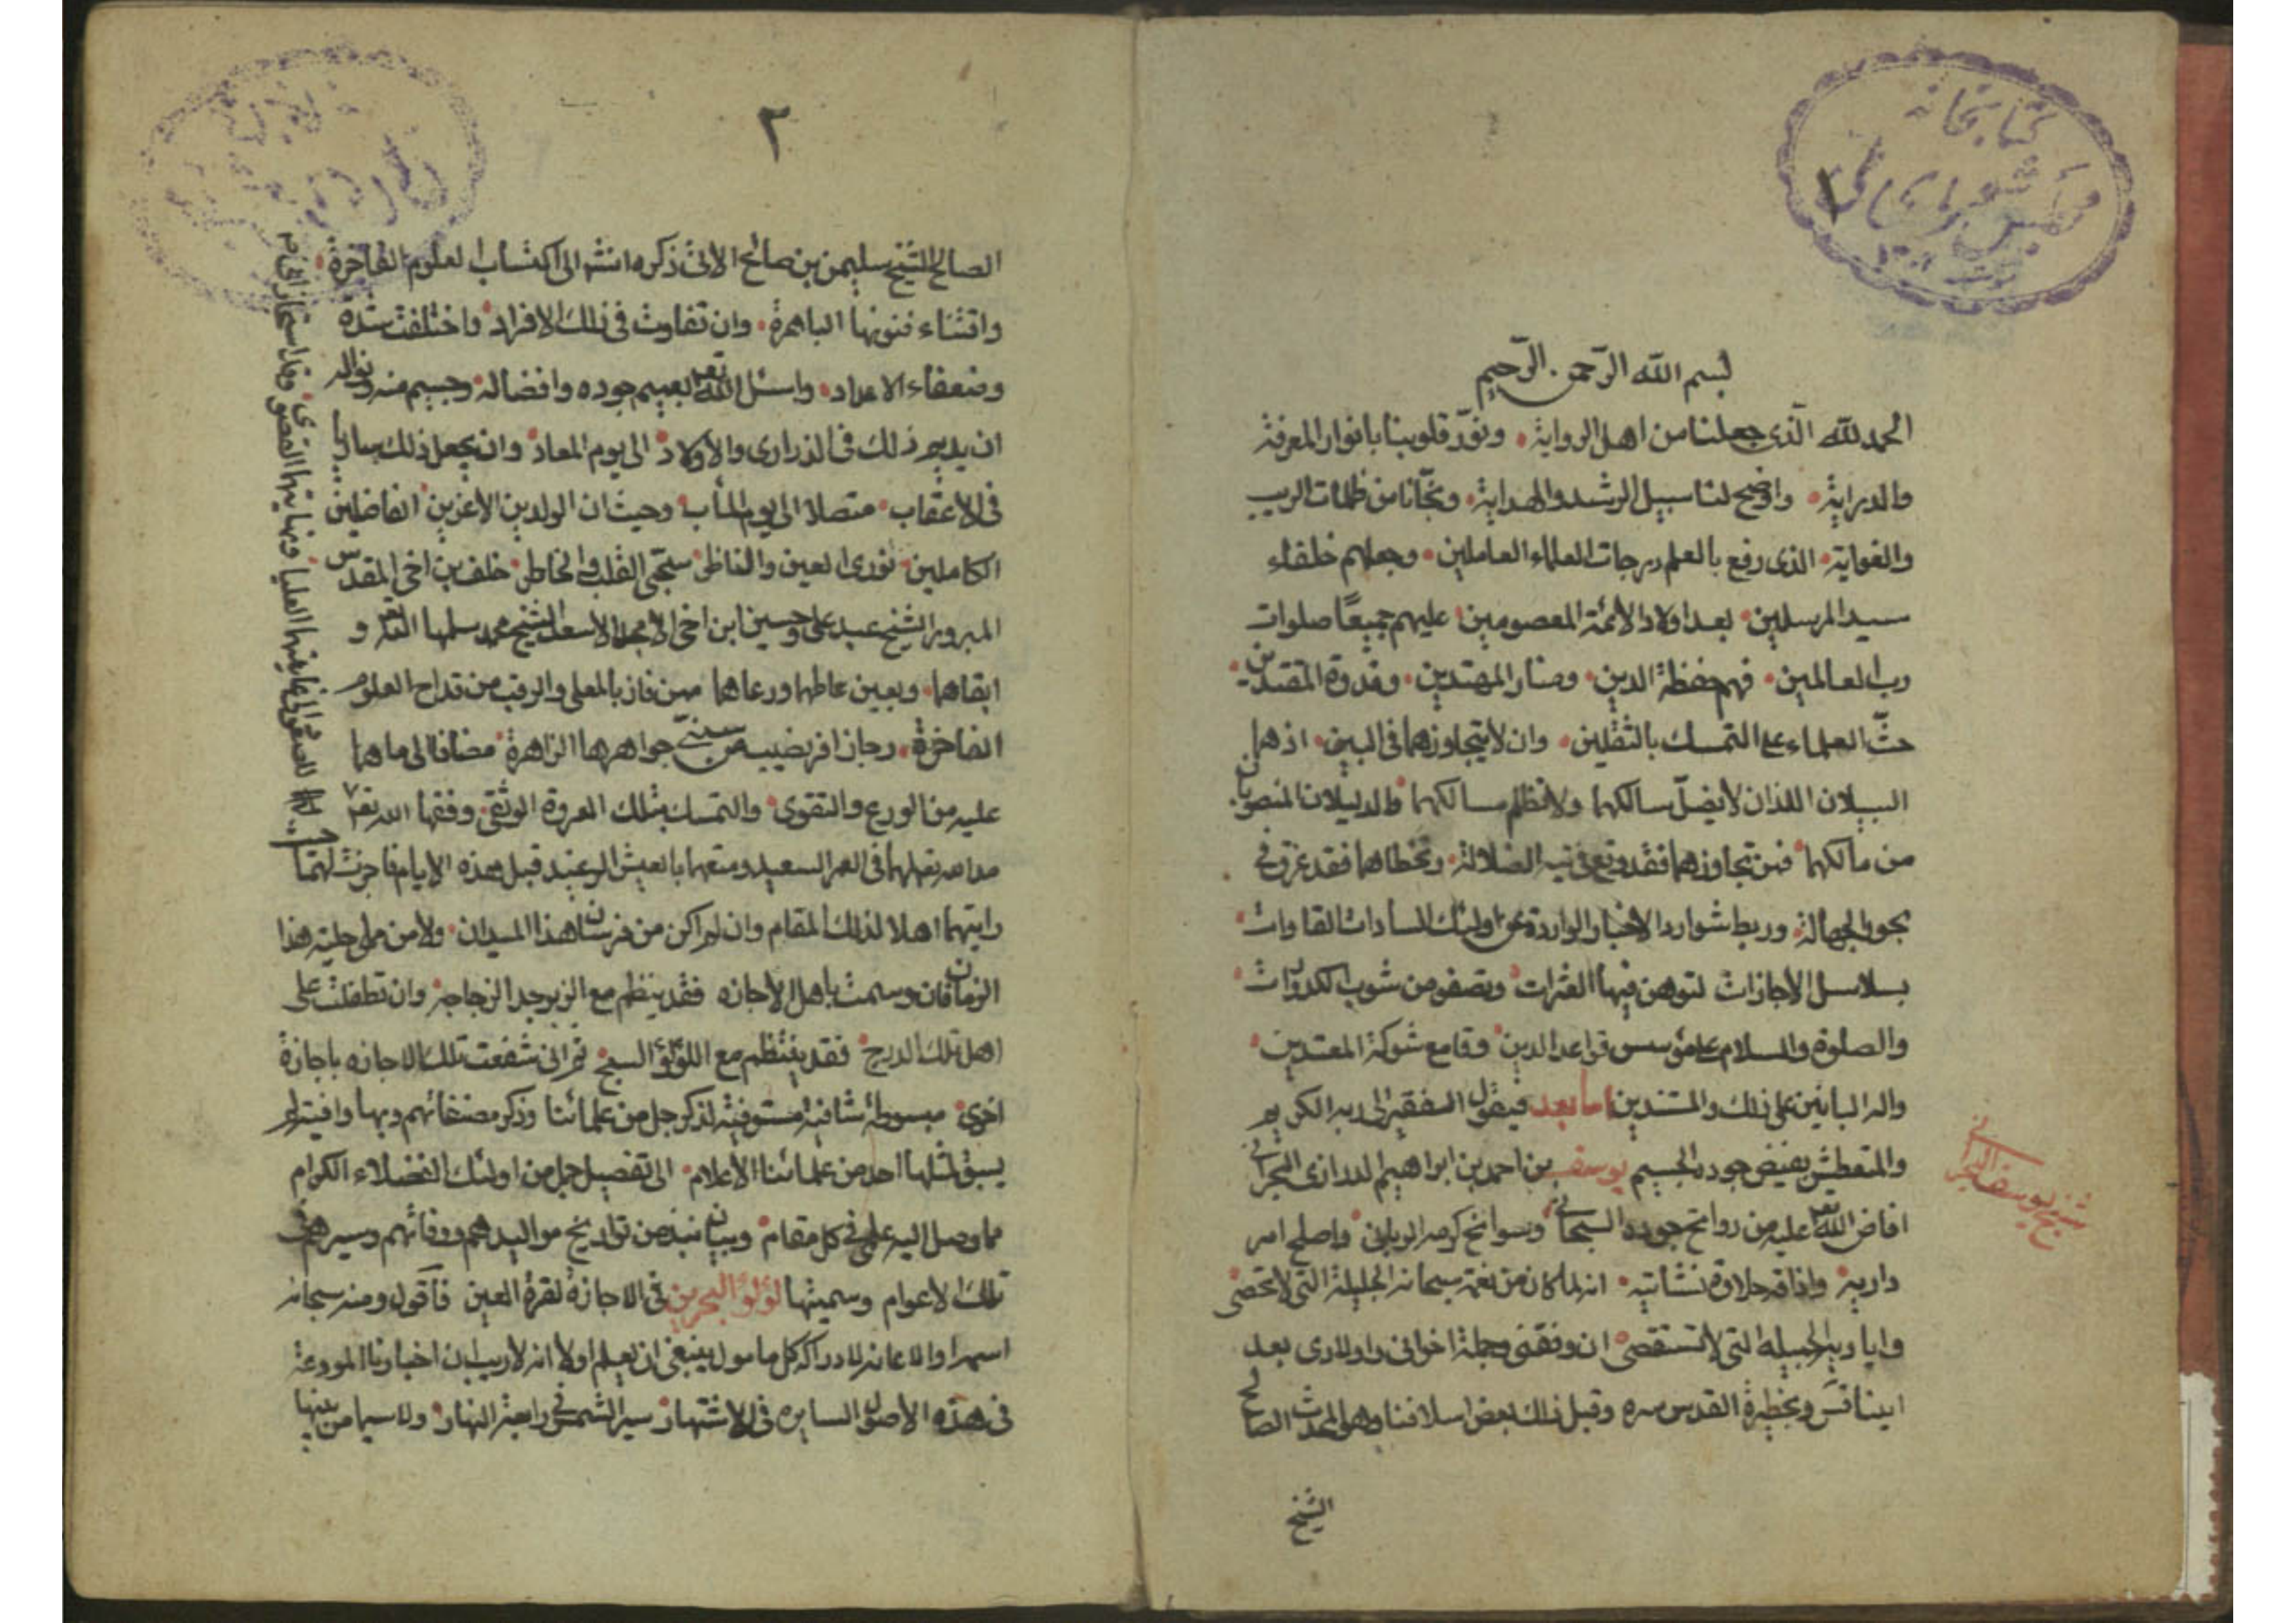 كتابخانه
مجلس شورای ملی
١
بسم الله الرّحمن الرّحيم
الحمد لله الّذى جعلنا من اهل الرواية ونوّر قلوبنا بانوار المعرفة
والدراية واوضح لنا سبيل الرشد والهداية ونجّانا من ظلمات الريب
والغواية الذى رفع بالعلم درجات العلماء العاملين وجعلهم خلفاء
سيد المرسلين بعد اولاد الأئمة المعصومين عليهم جميعًا صلوات
رب العالمين فهم حفظة الدين ومنار المهتدين وقدوة المقتدين
حثّ العلماء على التمسك بالثقلين وان لا يتجاوزهما فى البين اذ هما
السبيلان اللذان لا يضلّ سالكهما ولا تظلم مسالكهما والدليلان المنصوبان
من مالكهما فمن تجاوزهما فقد وقع فى تيه الضلالة وتخطاهما فقد غرق فى
بحور الجهالة وربط شوارد الاخبار الواردة عن اولئك السادات القاوات
بسلاسل الأجازات لتوهن فيها العثرات وتصفو من شوب الكدورات
والصلوة والسلام على مؤسس قواعد الدين وقامع شوكة المعتدين
واله البانين على ذلك والمشيدين اما بعد فيقول الفقير الى ربه الكريم
والمتعطش بفيض جوده الجسيم يوسف بن احمد بن ابراهيم الدرازى البحرانى
شيخ يوسف البحرانى
افاض الله تعم عليه من روايح جوده السبحانى وسوانح كرمه الربانى واصلح امر
داريه واذاقه حلاوة نشأتيه انه لما كان من نعمة سبحانه الجليلة التى لا تحصى
واياديه الجميله التى لا تستقصى ان وفقنى وجملة اخوانى واولادى بعد
ابينا قس وبحظيرة القدس سره وقبل ذلك بعض اسلافنا وهو المحدث الصالح
الشيخ
٢
الصالح الشيخ سليمن بن صالح الاتى ذكره انشا الى اكتساب العلوم الفاخرة
واقتناء فنونها الباهرة وان تفاوت فى ذلك الافراد واختلفت شدة
وضعفاء الاعداد واسئل الله تعم بعميم جوده وافضاله وجسيم منه ونواله
ان يديم ذلك فى الذرارى والأولاد الى يوم المعاد وان يجعل ذلك ساريا
فى الأعقاب متصلا الى يوم المأب وحيث ان الولدين الأعزين الفاضلين
الكاملين نورى العين والناظر سنحتى القلب والخاطر خلف بن اخى المقدس
المبرور الشيخ عبد على وحسين ابن اخى الامجد الاسعد الشيخ محمد سلمهما الله تعم و
ابقاهما وبعين عاطهما ورعاهما ممن فاز بالمعلى والرقيب من قداح العلوم
الفاخرة وحاز افر نصيبه من سنىّ جواهرها الزاهرة مضافا الى ما هما
عليه من الورع والتقوى والتمسك بتلك العروة الوثقى وفقهما الله تعم
مد الله تعم لهما فى العمر السعيد ومتعهما بالعيش الرغيد قبل هذه الايام فاجزت لهما
رايتهما اهلا لذلك المقام وان لم اكن من فرسان هذا الميدان ولا من على حلبة هذا
الزمان فان وسمت باهل الاجازه فقد ينظم مع الزبرجد الزجاجة وان تطفلت على
اهل تلك الدرج فقد ينتظم مع اللؤلؤ السبج ثم انى شفعت تلك الاجازه باجازة
اخرى مبسوطة شافية مستوفية لذكر جل من علمائنا وذكر مصنفاتهم وبها وافية لم
يسبق لمثلها احد من علمائنا الأعلام الى تفصيل جل من اولئك الفضلاء الكرام
مما وصل اليه علمى فى كل مقام وبيان نبذ من تواريخ مواليدهم ووفاتهم وسيرهم فى
تلك الاعوام وسميتها لؤلؤ البحرين فى الاجازة لقرة العين فأقول ومنه سبحانه
استمد والاعانه لادراكه كل مامول ينبغى ان يعلم اولا انه لا ريب ان اخبارنا المودعة
فى هذه الاصول السايره فى الاشتهار سير الشمس فى رابعة النهار ولا سيما من بينها